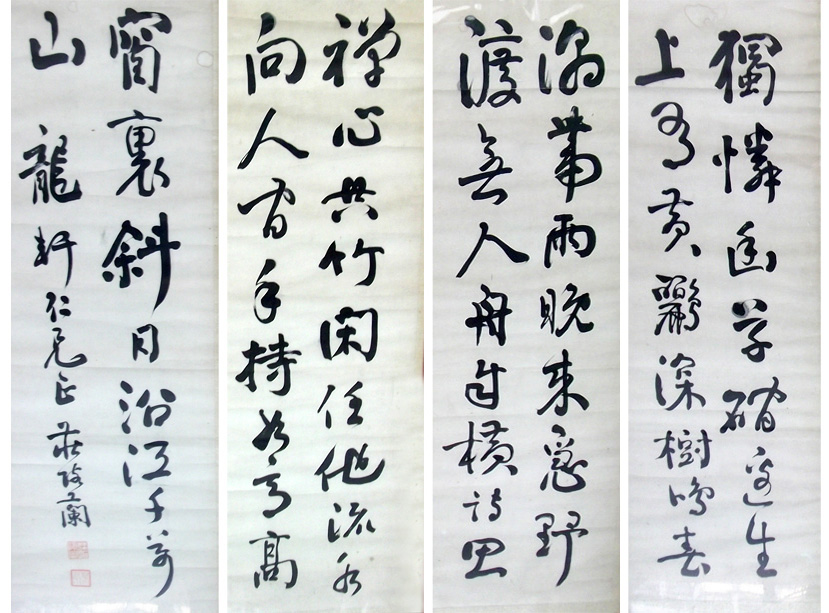 獨憐幽草磵邊生
上有黃鸝深樹鳴春
潮帶雨晚來急野
渡無人舟自橫詩思
禪心共竹閑任他流水
向人間手持如意高
窗裏斜日沿江千萬
山 龍軒仁兄正 莊陔蘭